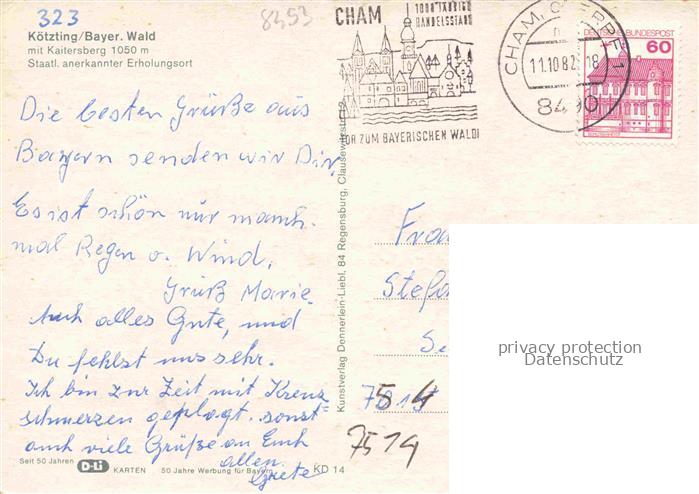 323
8453
Kötzting/Bayer. Wald
mit Kaitersberg 1050 m
Staatl. anerkannter Erholungsort
CHAM
1000 JÄHRIGE
HANDELSSTADT
TOR ZUM BAYERISCHEN WALD!
11.10.82
8490
DEUTSCHE BUNDESPOST
60
Die besten Grüße aus
Bayern senden wir Dir,
Es ist schön nur manch-
mal Regen u. Wind.
Gruß Marie.
Auch alles Gute, und
Du fehlst uns sehr.
Ich bin zur Zeit mit Kreuz
schmerzen geplagt. sonst
auch viele Grüße an Euch
allen.
Grete
Kunstverlag Dennerlein-Liebl, 84 Regensburg,
Frau
Stefa
7514
Seit 50 Jahren D-Li KARTEN 50 Jahre Werbung für Bayern KD 14
privacy protection
Datenschutz